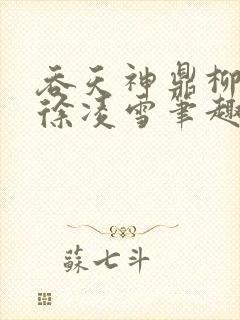 吞天神鼎柳
徐凌雪笔趣
蘇七斗